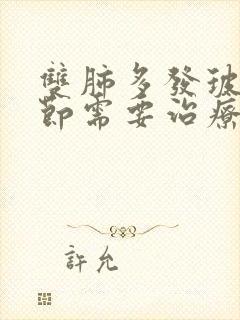 雙肺多發玻
節需要治療
許允